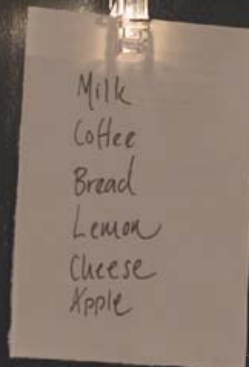 Milk
Coffee
Bread
Lemon
Cheese
Apple